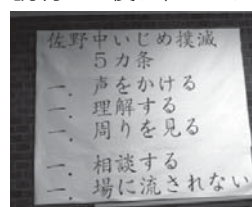 佐野中いじめ撲滅
5カ条
一．声をかける
一．理解する
一．周りを見る
一．相談する
一．場に流されない